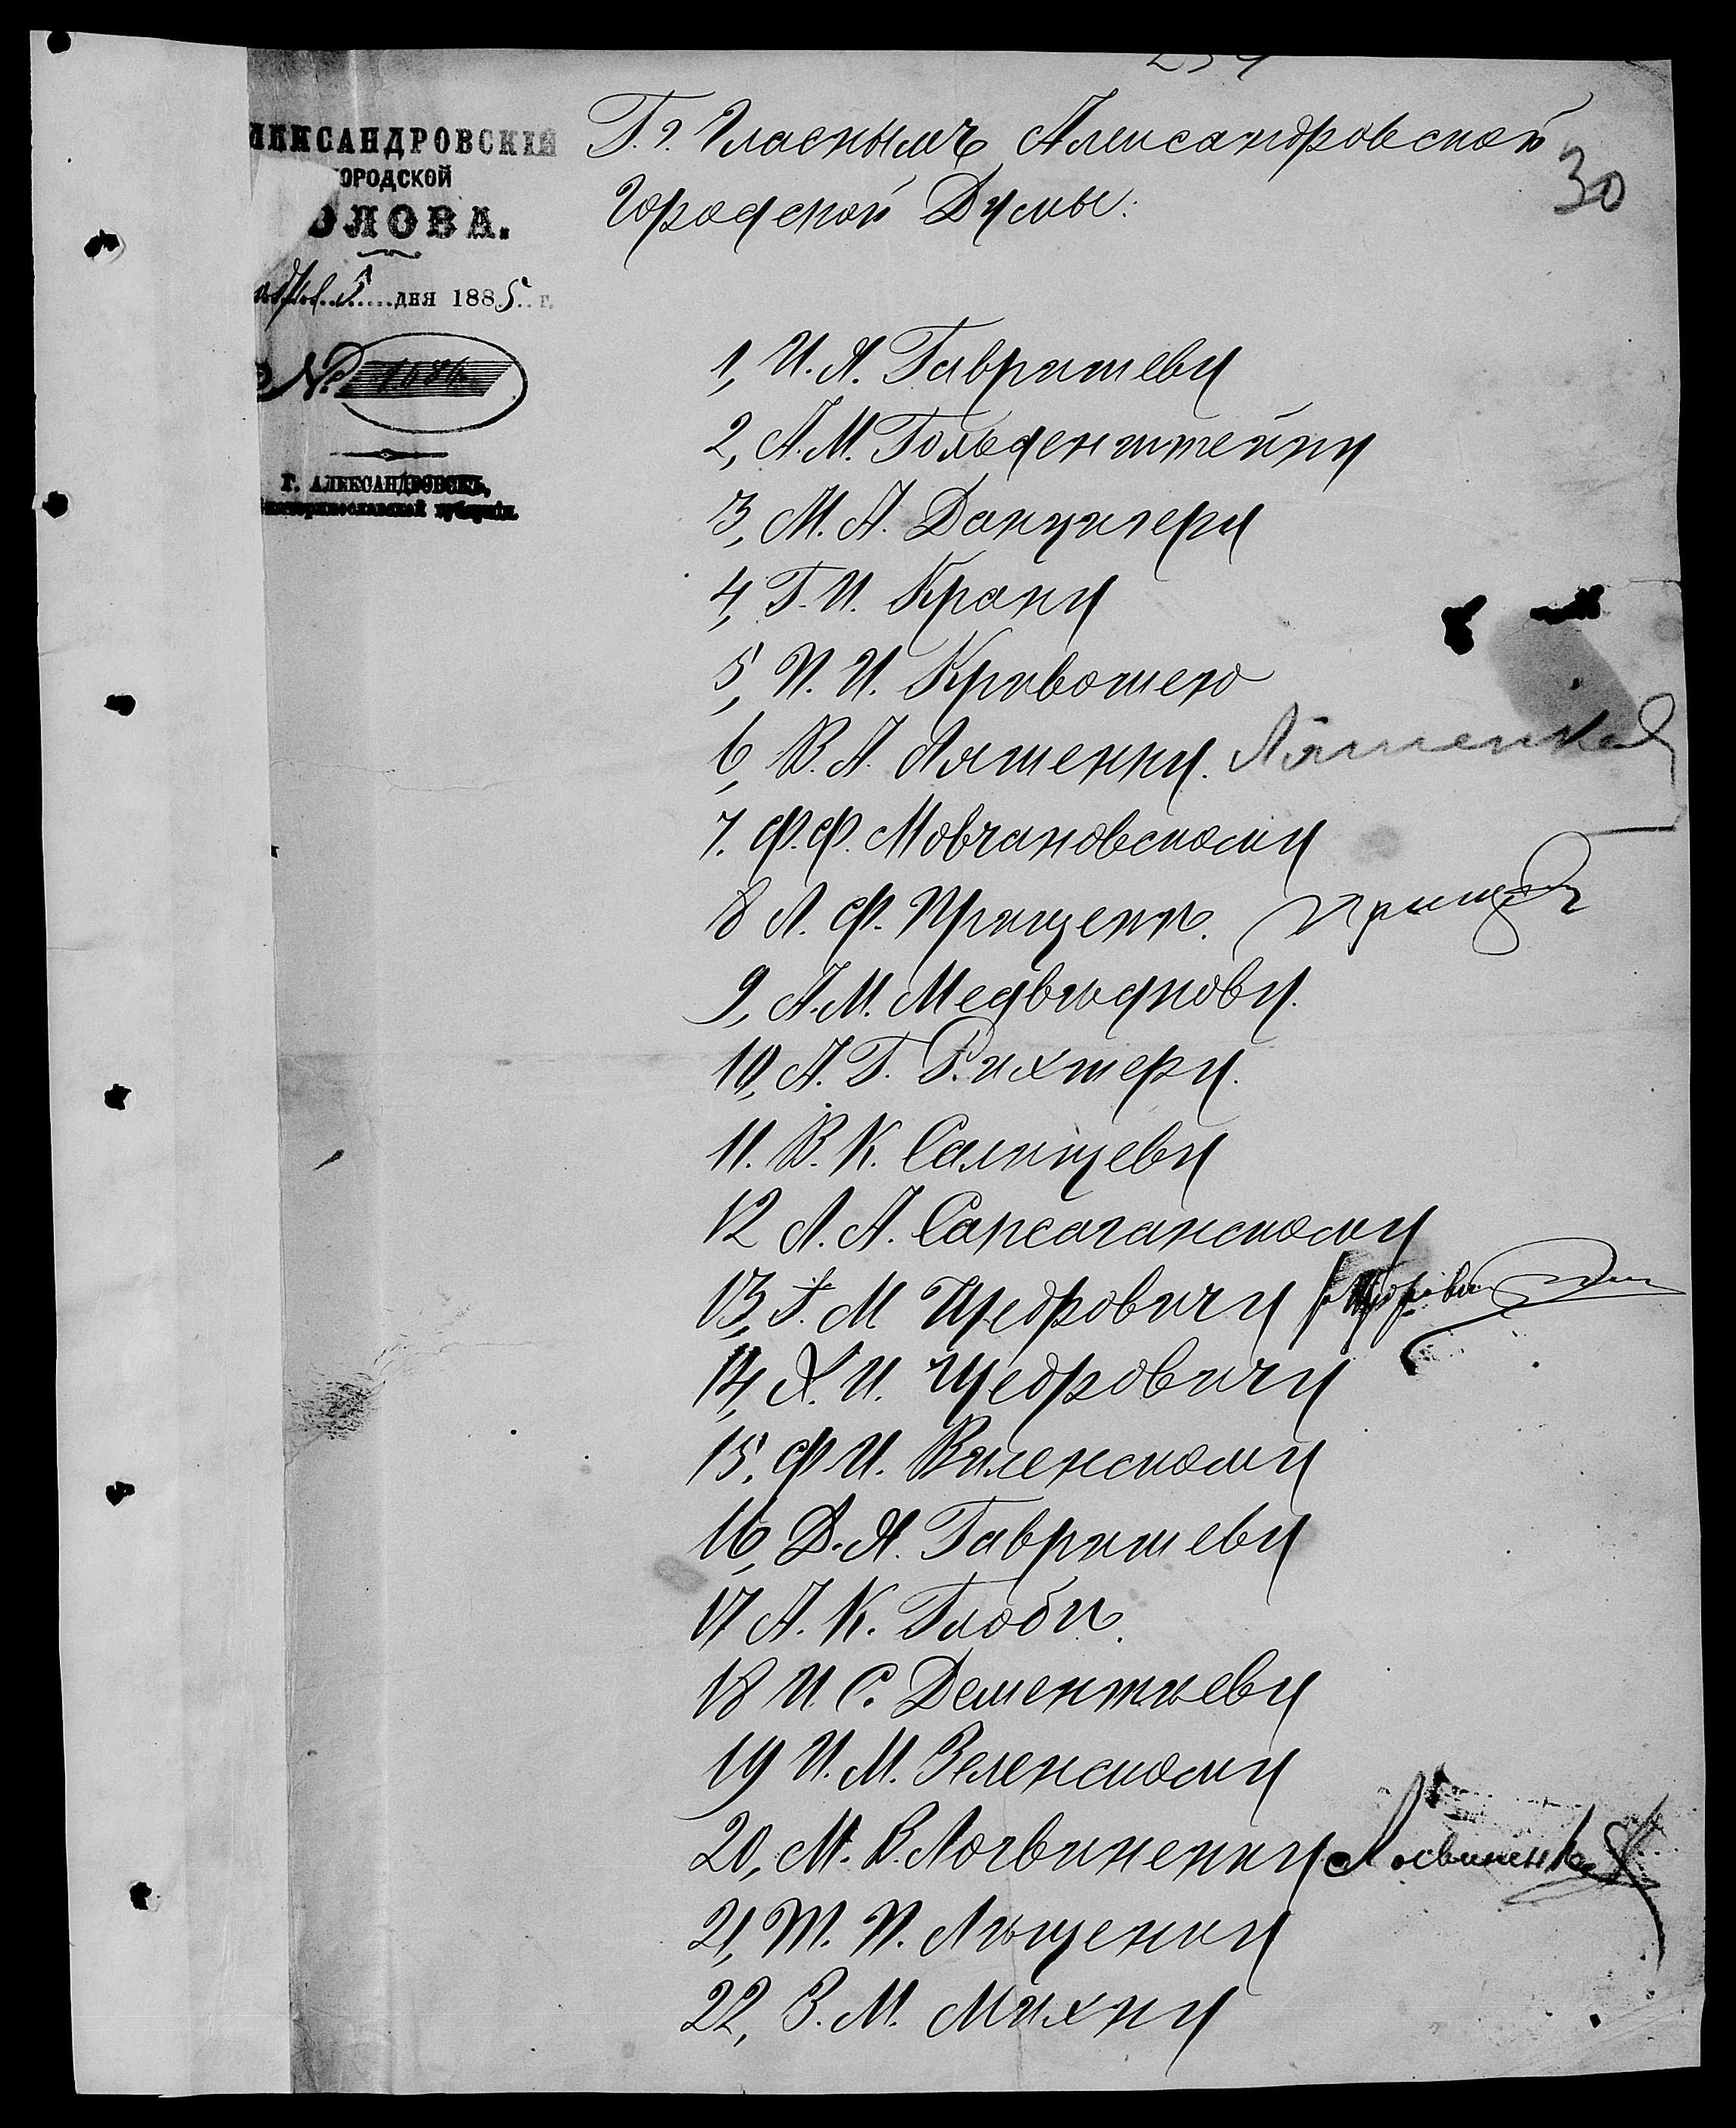 АЛЕКСАНДРОВСКІЙ
ГОРОДСКОЙ
ГОЛОВА.
5 дня 1885 г.
№ 1686
Г. АЛЕКСАНДРОВСКЪ,
Екатеринославской губерніи.
30
Г.г. Гласнымъ Александровской
Городской Думы:
1, И. Я. Гавришеву
2, А. М. Гольденштейну
3, М. А. Данцигеру
4, Г. И. Крану
5, П. И. Кривошею
6, В. А. Ляшенку. Ляшенко
7. Ф. Ф. Мовчановскому
8 Л. Ф. Прищепѣ.
9, А. М. Медвѣдкову.
10, А. Г. Рихтеру.
11. В. К. Салищеву
12 Л. А. Сарсаганскому
13, М Щедровичу
14, Х. И. Щедровичу
15. Ф И. Виленскому
16, Д. Я. Гавришеву
17 А. К. Глобѣ.
18 И. С. Дементьеву
19 И. М. Зеленскому
20, М. В. Логвиненку Логвиненко
21, Т. П. Лященку
22, З. М. Михну